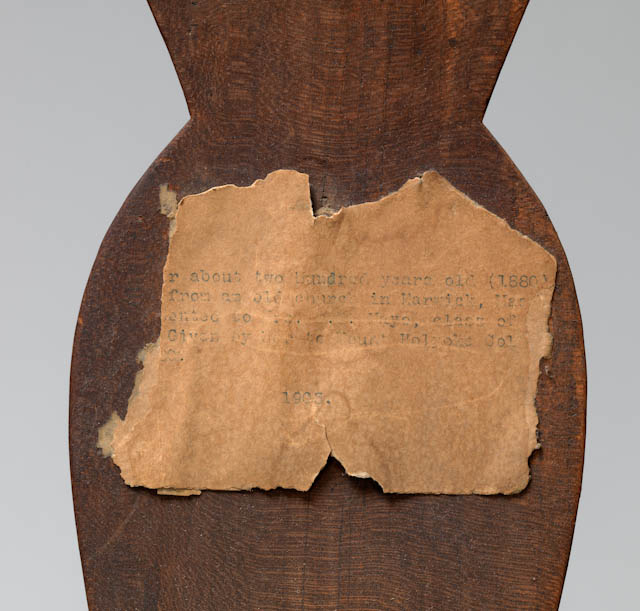 r about two hundred years old (1880)
from an old church in Warwick, Mas
ented to Mayo, class of
Given by to Mount Holyoke Col
1903.